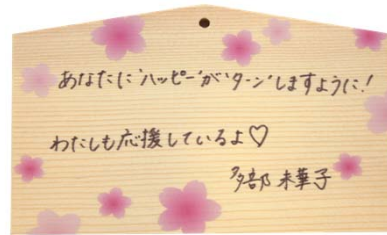 あなたに"ハッピー"が"ターン"しますように!
わたしも応援しているよ♡
多部 未華子